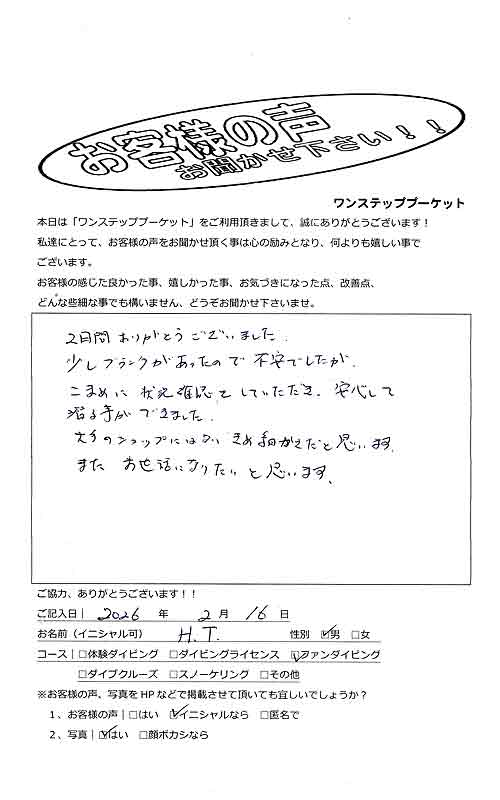 お客様の声
お聞かせ下さい！！
ワンステッププーケット
本日は「ワンステッププーケット」をご利用頂きまして、誠にありがとうございます！
私達にとって、お客様の声をお聞かせ頂く事は心の励みとなり、何よりも嬉しい事で
ございます。
お客様の感じた良かった事、嬉しかった事、お気づきになった点、改善点、
どんな些細な事でも構いません、どうぞお聞かせ下さいませ。
2日間ありがとうございました.
少しブランクがあったので不安でしたが.
こまめに状況確認をしていただき.安心して
潜る事ができました.
大手のショップにはないきめ細かさだと思います.
またお世話になりたいと思います.
ご協力、ありがとうございます！！
ご記入日｜ 2026 年 2月 16 日
お名前（イニシャル可） H.T. 性別 ☑男 □女
コース｜□体験ダイビング □ダイビングライセンス ☑ファンダイビング
□ダイブクルーズ □スノーケリング □その他
※お客様の声、写真をHPなどで掲載させて頂いても宜しいでしょうか？
1、お客様の声｜□はい ☑イニシャルなら □匿名で
2、写真｜☑はい □顔ボカシなら